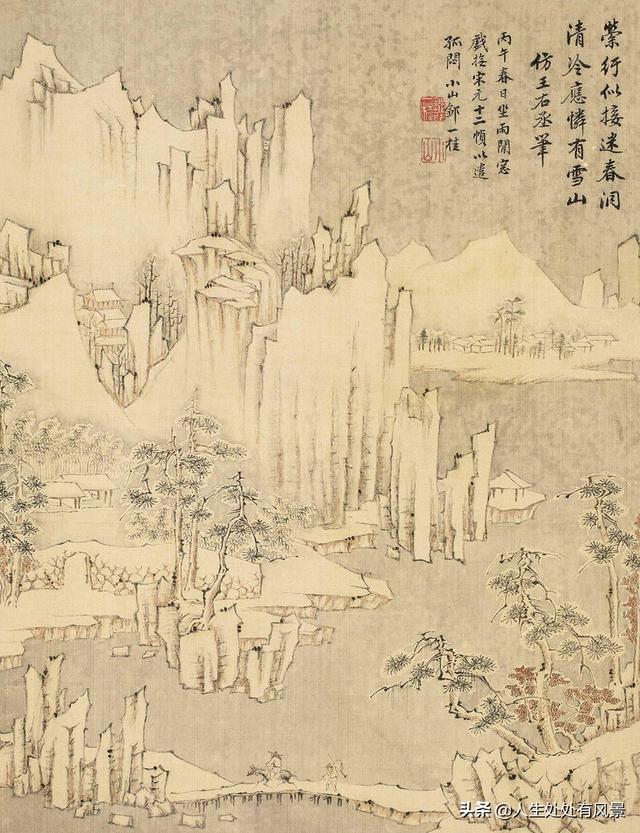 縈紆似接迷春洞
清冷應憐有雪山
仿王右丞筆
丙午春日坐雨閒窓
戲宋元十二幀以遣
孤悶 小山鄒一桂
头条 @人生处处有风景